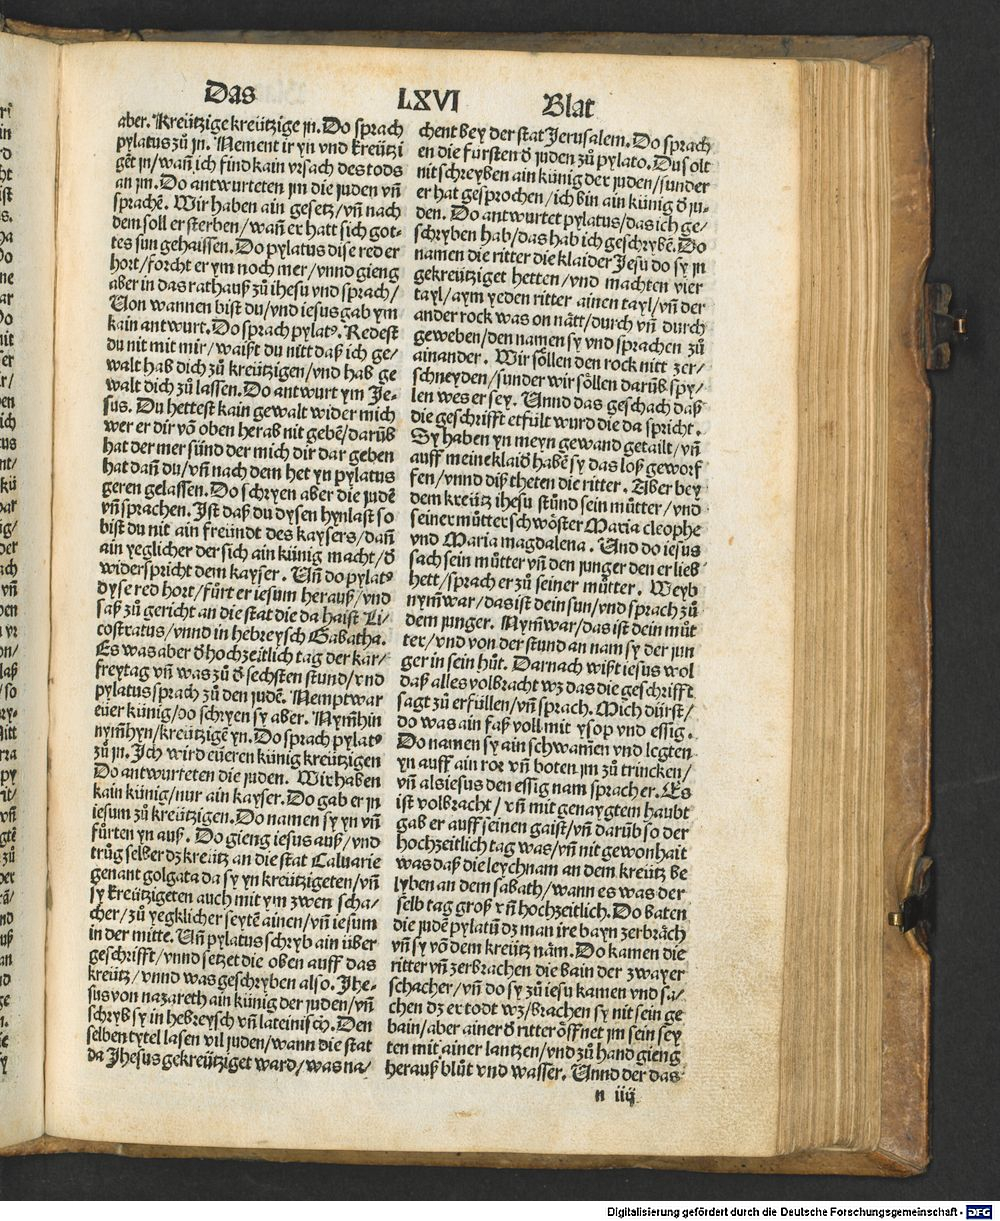 Das LXVI Blat
aber. Kreützige kreützige jn. Do sprach
pylatus zů jn. Nement ir yn vnd kreützi
gẽt in/wañ ich find kain vrsach des tods
an jm. Do antwurteten jm die juden vñ
sprachẽ. Wir haben ain gesetz/vñ nach
dem soll er sterben/wañ er hatt sich got-
tes sun gehaissen. Do pylatus dise red er
hort/forcht er ym noch mer/vnnd gieng
aber in das rathauß zů ihesu vnd sprach/
Von wannen bist du/vnd iesus gab ym
kain antwurt. Do sprach pylatꝰ. Redest
du nit mit mir/waißt du nitt daß ich ge/
walt hab dich zů kreützigen/vnd hab ge
walt dich zů lassen. Do antwurt ym Je-
sus. Du hettest kain gewalt wider mich
wer er dir võ oben herab nit gebẽ/darũb
hat der mer sünd der mich dir dar geben
hat dañ du/vñ nach dem het yn pylatus
geren gelassen. Do schryen aber die judẽ
vñ sprachen. Ist daß du dysen hynlast so
bist du nit ain freündt des kaysers/dañ
ain yeglicher der sich ain künig macht/d̕
widerspricht dem kayser. Vñ do pylatꝰ
dyse red hort/fůrt er iesum herauß/vnd
saß zů gericht an die stat die da haist Li/
costratus/vnnd in hebreysch Gabatha.
Es was aber d̕ hochzeitlich tag der kar/
freytag vñ was zů d̕ sechsten stund/vnd
pylatus sprach zů den judẽ. Nemptwar
euer künig/do schryen sy aber. Nym̃hin
nym̃hyn/kreützigẽ yn. Do sprach pylatꝰ
zů jn. Ich wird eüeren künig kreützigen
Do antwurteten die juden. Wir haben
kain künig/nur ain kayser. Do gab er jn
iesum zů kreützigen. Do namen sy yn vñ
fůrten yn auß. Do gieng iesus auß/vnd
trůg selber dz kreütz an die stat Caluarie
genant golgata da sy yn kreützigeten/vñ
sy kreützigeten auch mit ym zwen scha/
cher/zů yegklicher seytẽ ainen/vñ iesum
in der mitte. Vñ pylatus schryb ain über
geschrifft/vnnd setzet die oben auff das
kreütz/vnnd was geschryben also. Jhe-
sus von nazareth ain künig der juden/vñ
schryb sy in hebreysch vñ lateinisch. Den
selben tytel lasen vil juden/wann die stat
da Jhesus gekreütziget ward/was na/
chent bey der stat Jerusalem. Do sprach
en die fursten d̕ juden zů pylato. Du solt
nit schreyben ain künig der juden/sunder
er hat gesprochen/ich bin ain künig d̕ ju-
den. Do antwurtet pylatus/das ich ge/
schryben hab/das hab ich geschrybẽ. Do
namen die ritter die klaider Jesu do sy jn
gekreütziget hetten/vnd machten vier
tayl/aym yeden ritter ainen tayl/vñ der
ander rock was on nätt/durch vñ durch
geweben/den namen sy vnd sprachen zů
ainander. Wir söllen den rock nitt zer/
schneyden/sunder wir söllen darũb spy/
len wes er sey. Vnnd das geschach daß
die geschrifft erfült wurd die da spricht.
Sy haben yn meyn gewand getailt/vñ
auff meine klaid̕ habẽ sy das loß geworf
fen/vnnd diß theten die ritter. Aber bey
dem kreütz ihesu stůnd sein můtter/vnd
seiner můtter schwöster Maria cleophe
vnd Maria magdalena. Vnd do iesus
sach sein můtter vñ den junger den er lieb
hett/sprach er zů seiner můtter. Weyb
nym̃war/das ist dein sun/vnd sprach zů
dem junger. Nym̃war/das ist dein můt
ter/vnd von der stund an nam sy der jun
ger in sein hůt. Darnach wißt iesus wol
daß alles volbracht wz das die geschrifft
sagt zů erfüllen/vñ sprach. Mich dürst/
do was ain faß voll mit ysop vnd essig.
Do namen sy ain schwam̃en vnd legten
yn auff ain ror vñ boten jm zů trincken/
vñ als iesus den essig nam sprach er. Es
ist volbracht/vñ mit genaygtem haubt
gab er auff seinen gaist/vñ darũb so der
hochzeitlich tag was/vñ nit gewonhait
was daß die leychnam an dem kreütz be
lyben an dem sabath/wann es was der
selb tag groß vñ hochzeitlich. Do baten
die judẽ pylatũ dz man ire bayn zerbräch
vñ sy võ dem kreütz näm. Do kamen die
ritter vñ zerbrachen die bain der zwayer
schacher/vñ do sy zů iesu kamen vnd sa/
chen dz er todt wz/brachen sy nit sein ge
bain/aber ainer d̕ ritter öffnet jm sein sey
ten mit ainer lantzen/vnd zů hand gieng
herauß blůt vnd wasser. Vnnd der das
n iiij
Digitalisierung gefördert durch die Deutsche Forschungsgemeinschaft - DFG